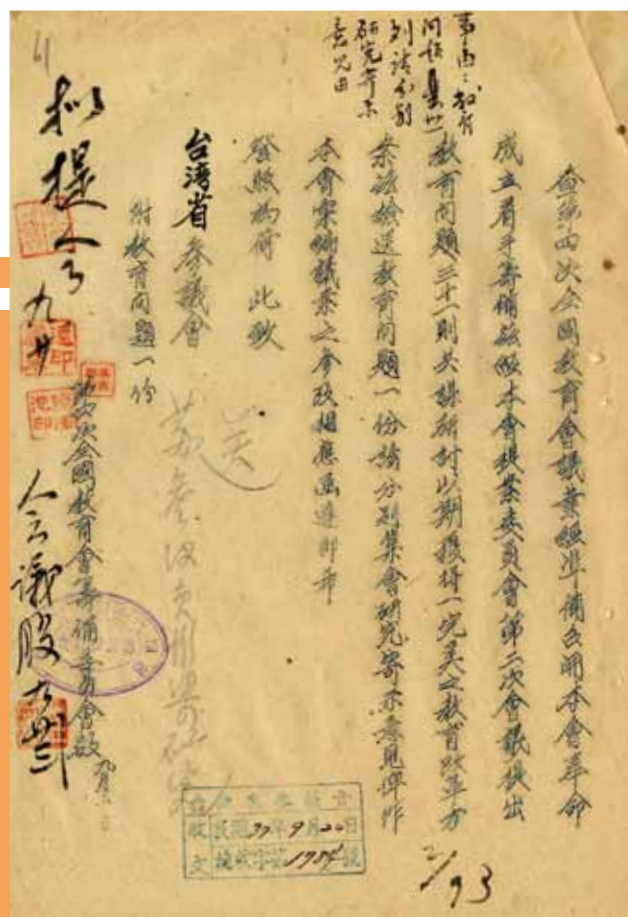 事由：教育
問題集世一
列請分別
研究寄示
意見由
查第四次全國教育會議業經準備召開本會革命
成立着手籌備茲經本會提案委員會第二次會議提出
教育問題三十一則共謀研討以期獲得一完美之教育改革方
案茲檢送教育問題一份請分別集會研究寄示意見俾作
本會彙編議案之參改相應函達即希
發照為荷 此致
台灣省參議會
附教育問題一份
第四次全國教育會議籌備委員會啟
擬提會
九廿
會議股
收文
民國37年9月20日
字第1784號
2/93